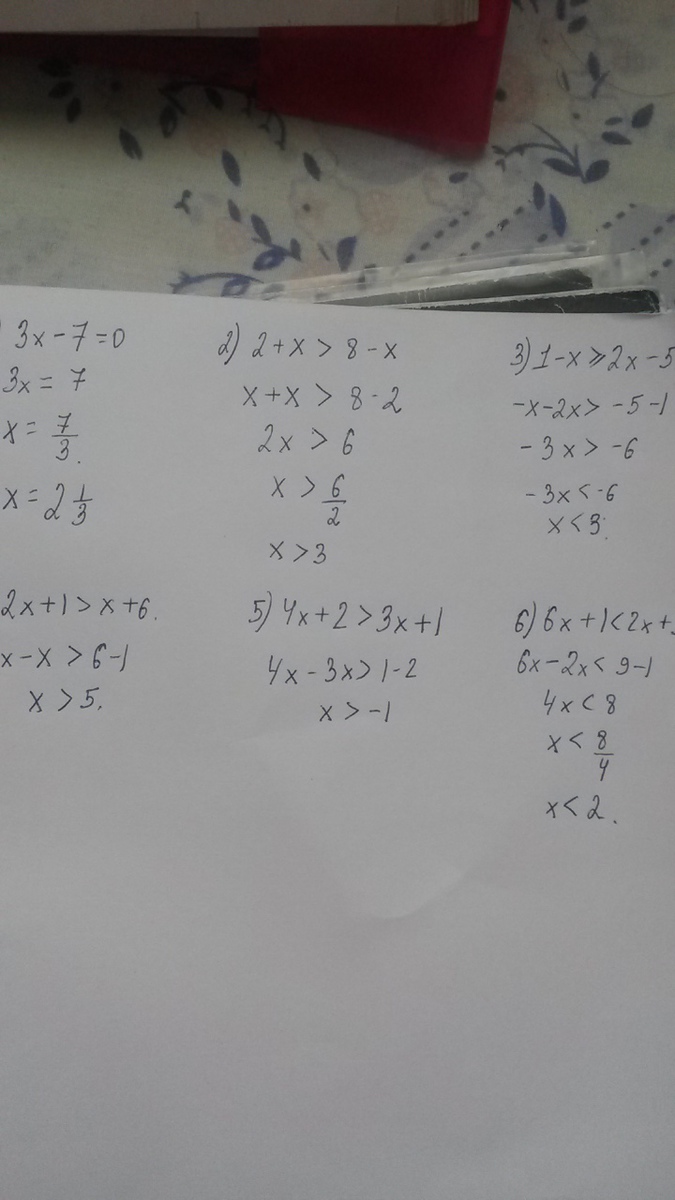 3x-7=0
3x = 7
x = 7/3.
x = 2 1/3
2) 2+x > 8-x
x+x > 8-2
2x > 6
x > 6/2
x > 3
3) 1-x ⩾ 2x-5
-x-2x > -5-1
-3x > -6
-3x < -6
x < 3.
2x+1 > x+6.
x-x > 6-1
x > 5.
5) 4x+2 > 3x+1
4x-3x > 1-2
x > -1
6) 6x+1 < 2x+
6x-2x < 9-1
4x < 8
x < 8/4
x < 2.